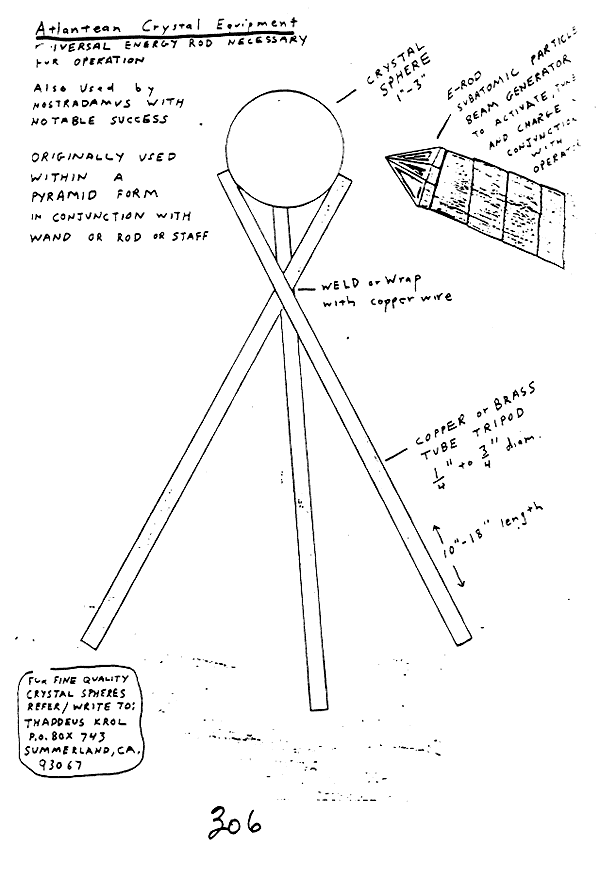 Atlantean Crystal Equipment
IVERSAL ENERGY ROD NECESSARY
FOR OPERATION
Also Used by
NOSTRADAMUS WITH
NOTABLE SUCCESS
ORIGINALLY USED
WITHIN A
PYRAMID FORM
IN CONJUNCTION WITH
WAND OR ROD OR STAFF
CRYSTAL
SPHERE
1"-3"
E-ROD
SUBATOMIC PARTICLE
BEAM GENERATOR
TO ACTIVATE, TUNE
AND CHARGE
CONJUNCTION
WITH
OPERATOR
WELD or Wrap
with copper wire
COPPER or BRASS
TUBE TRIPOD
1/4" to 3/4" diam.
10"-18" length
FOR FINE QUALITY
CRYSTAL SPHERES
REFER/WRITE TO:
THADDEUS KROL
P.O. BOX 743
SUMMERLAND, CA.
93067
306